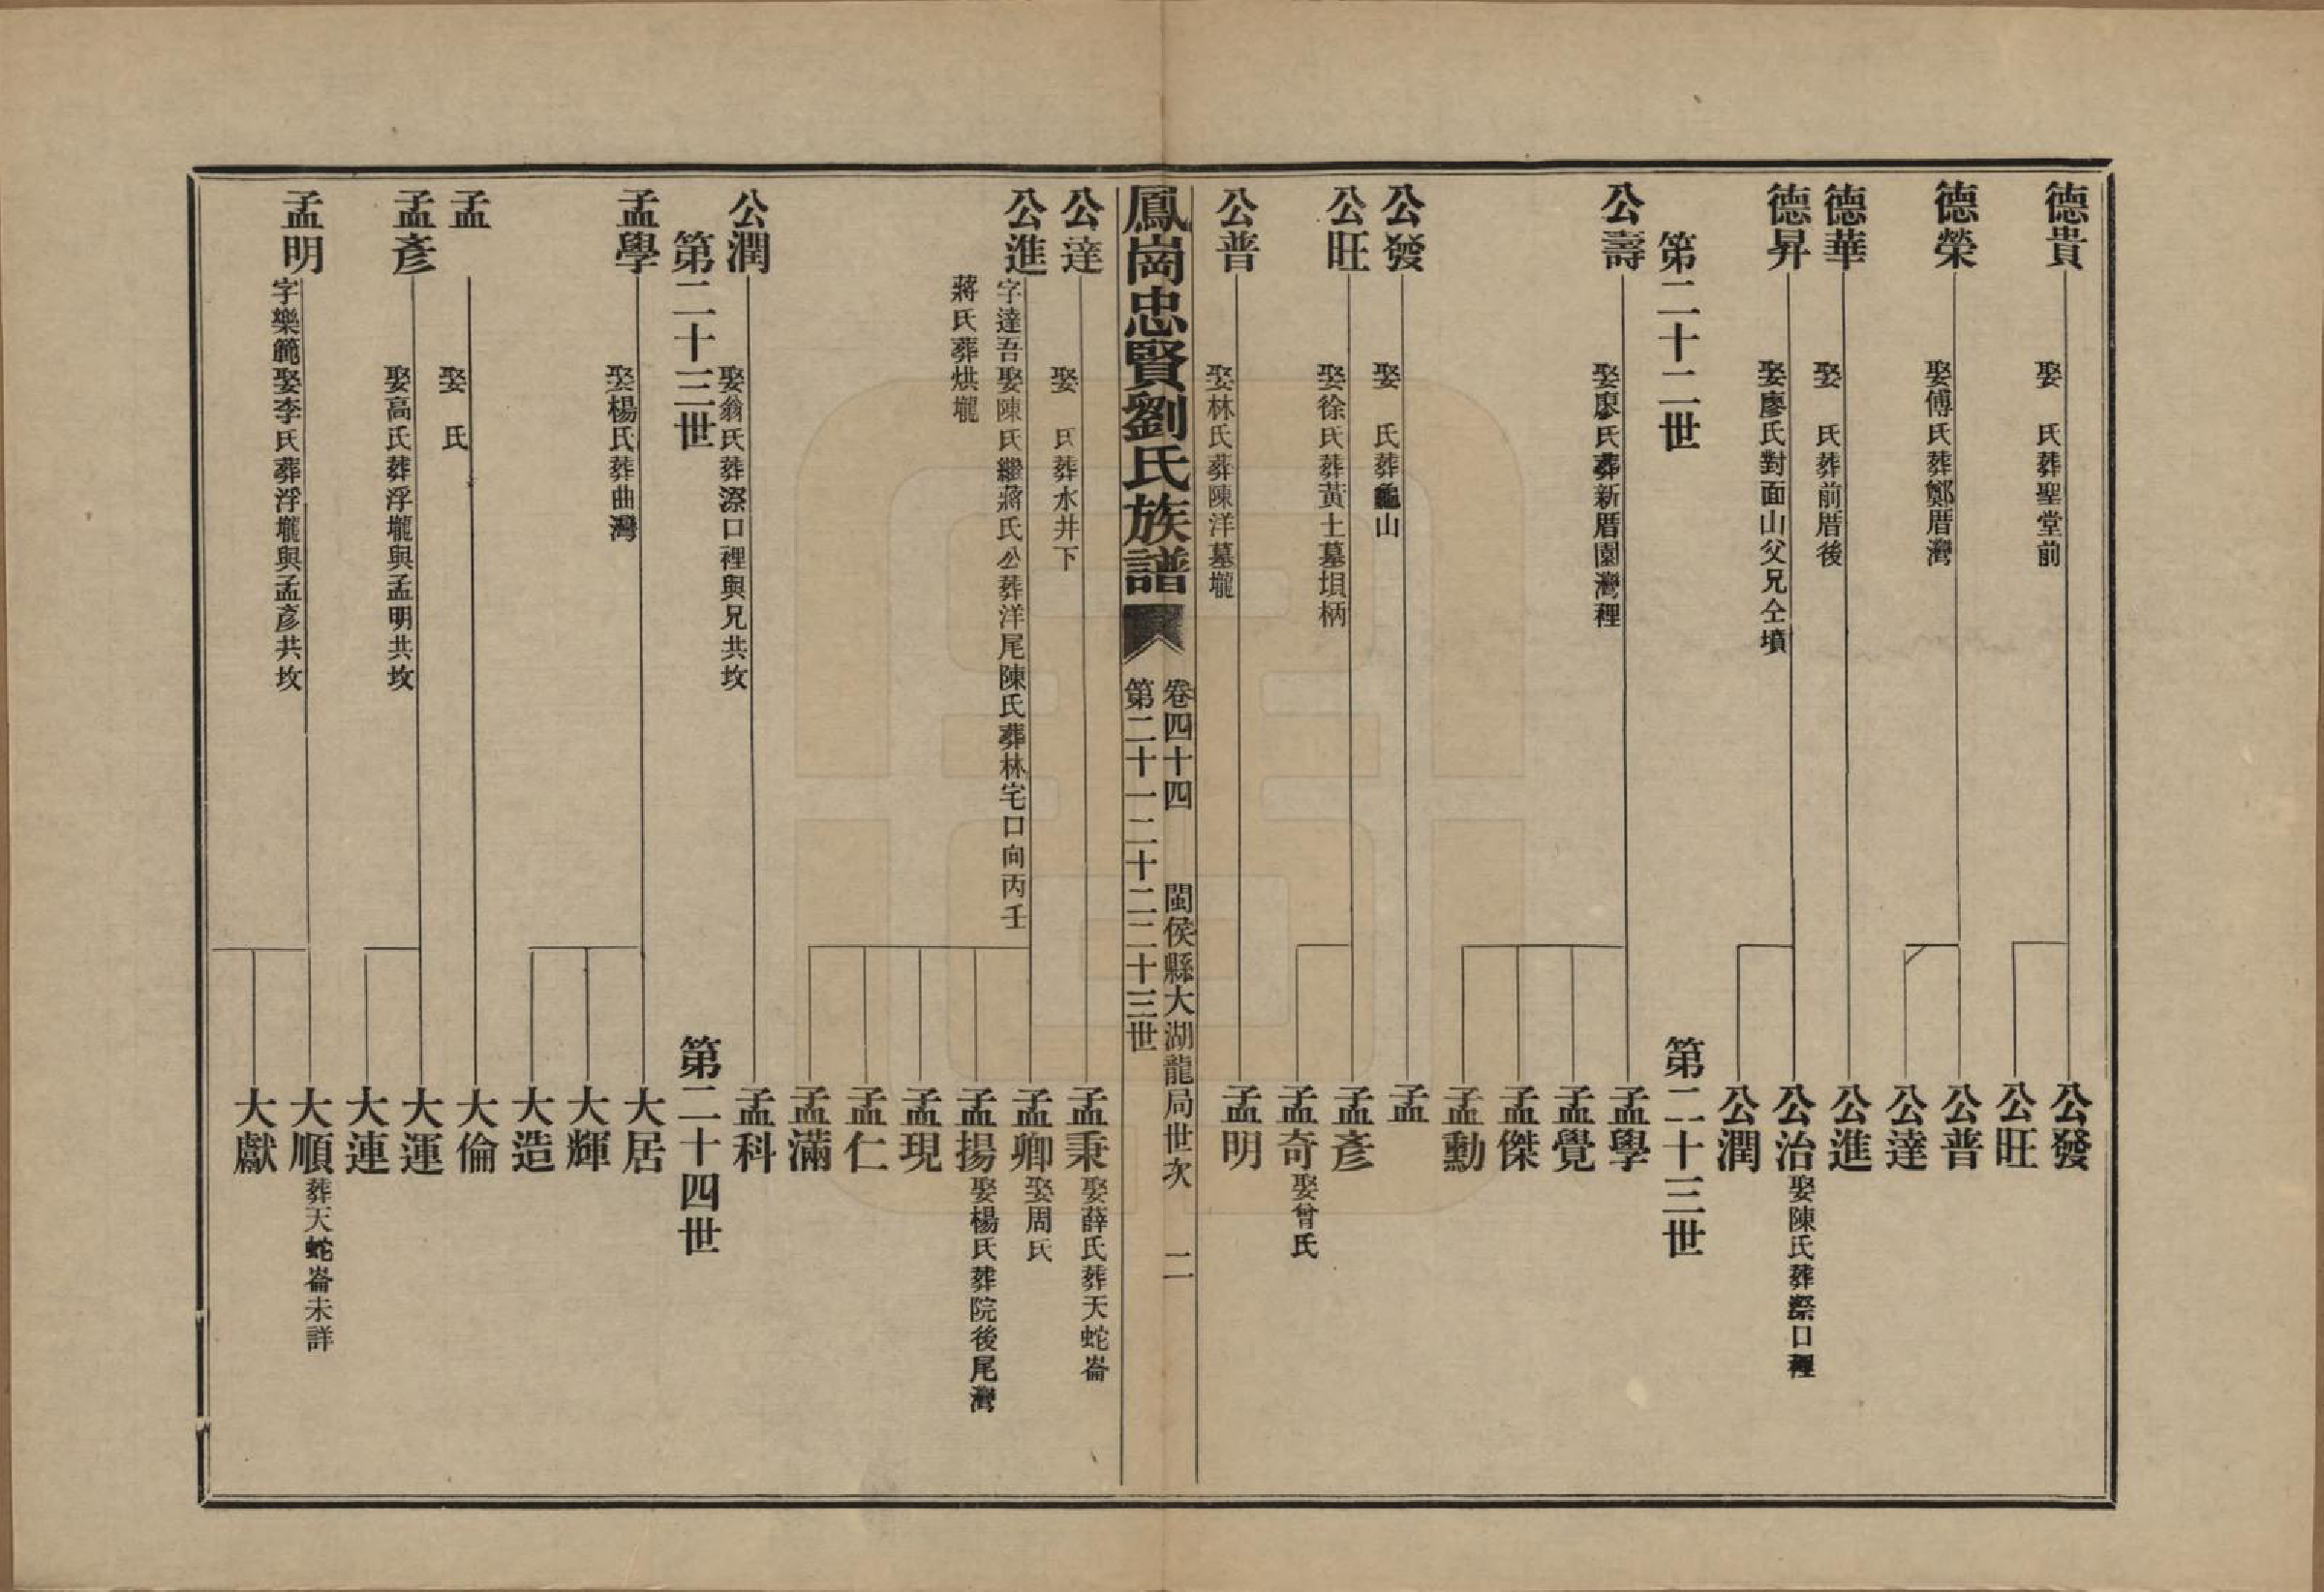 德貴
娶　氏葬聖堂前
公發
公旺
德榮
娶傅氏葬鄭厝灣
公普
公達
德華
娶　氏葬前厝後
公進
德昇
娶廖氏對面山父兄仝墳
公治娶陳氏葬漈口裡
公潤
第二十二世
第二十三世
公壽
娶廖氏葬新厝園灣裡
孟學
孟覺
孟傑
孟勳
公發
娶　氏葬龜山
孟
公旺
娶徐氏葬黃土墓垻柄
孟彥
孟奇娶曾氏
公普
娶林氏葬陳洋墓壠
孟明
鳳崗忠賢劉氏族譜
卷四十四　閩侯縣大湖龍局世次　二
第二十一二十二二十三世
公達
娶　氏葬水井下
孟秉娶薛氏葬天蛇崙
公進
字達吾娶陳氏繼蔣氏公葬洋尾陳氏葬林宅口向丙壬
蔣氏葬烘壠
孟卿娶周氏
孟揚娶楊氏葬院後尾灣
孟現
孟仁
孟滿
公潤
娶翁氏葬漈口裡與兄共坟
孟科
第二十三世
第二十四世
孟學
娶楊氏葬曲灣
大居
大輝
大造
孟
娶　氏
大倫
孟彥
娶高氏葬浮壠與孟明共坟
大運
大連
孟明
字樂範娶李氏葬浮壠與孟彥共坟
大順葬天蛇崙未詳
大獻